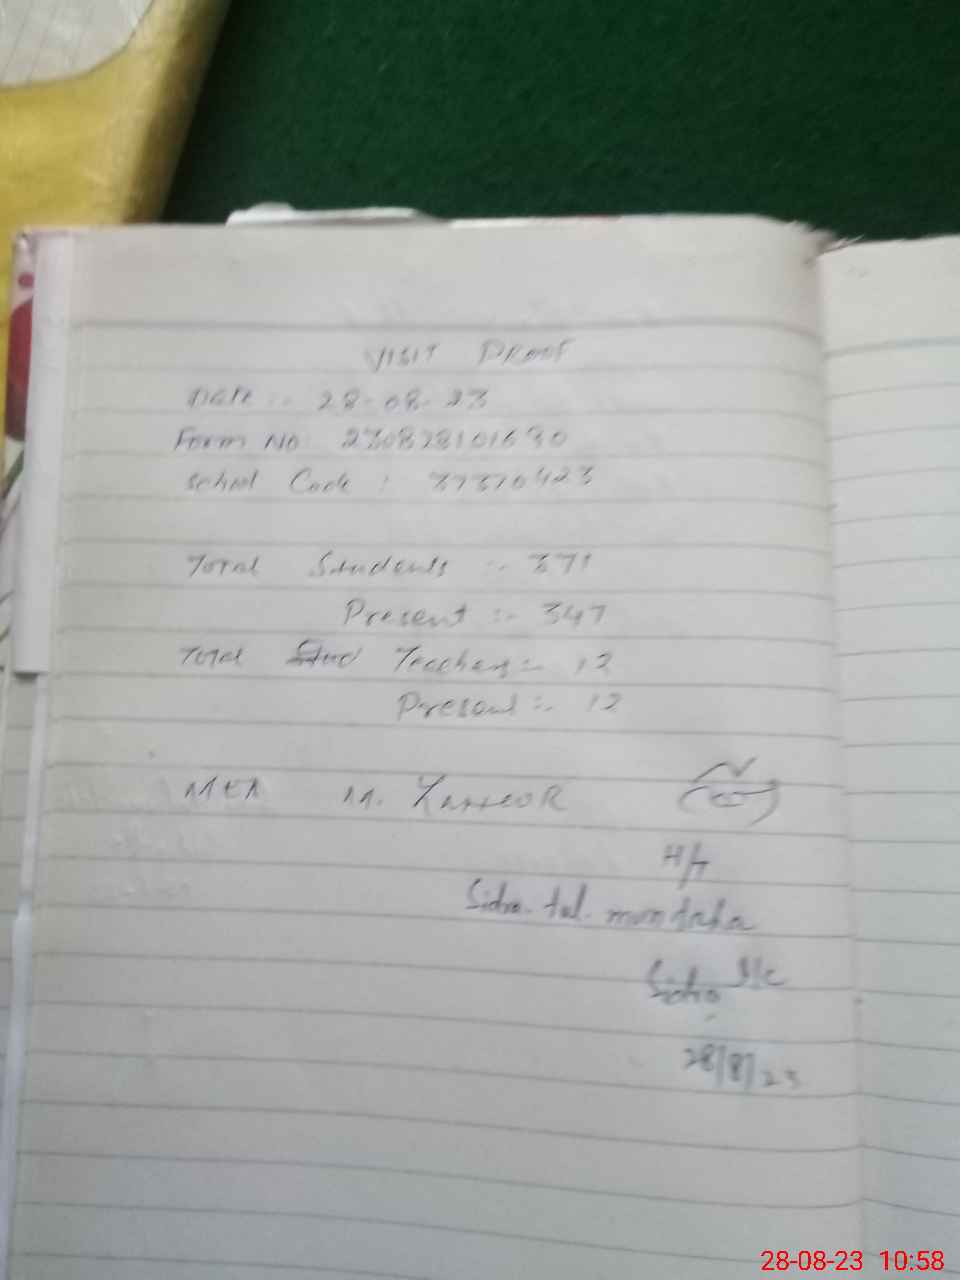 VISIT PROOF
Date :- 28-08-23
Form No 230828101630
School Code : 37370423
Total Students :- 371
Present :- 347
Total Teachers :- 12
Present :- 12
MEA M. ZAHOOR
H/T
Sidra. tul. muntaha
Sidra
28/8/23
28-08-23 10:58